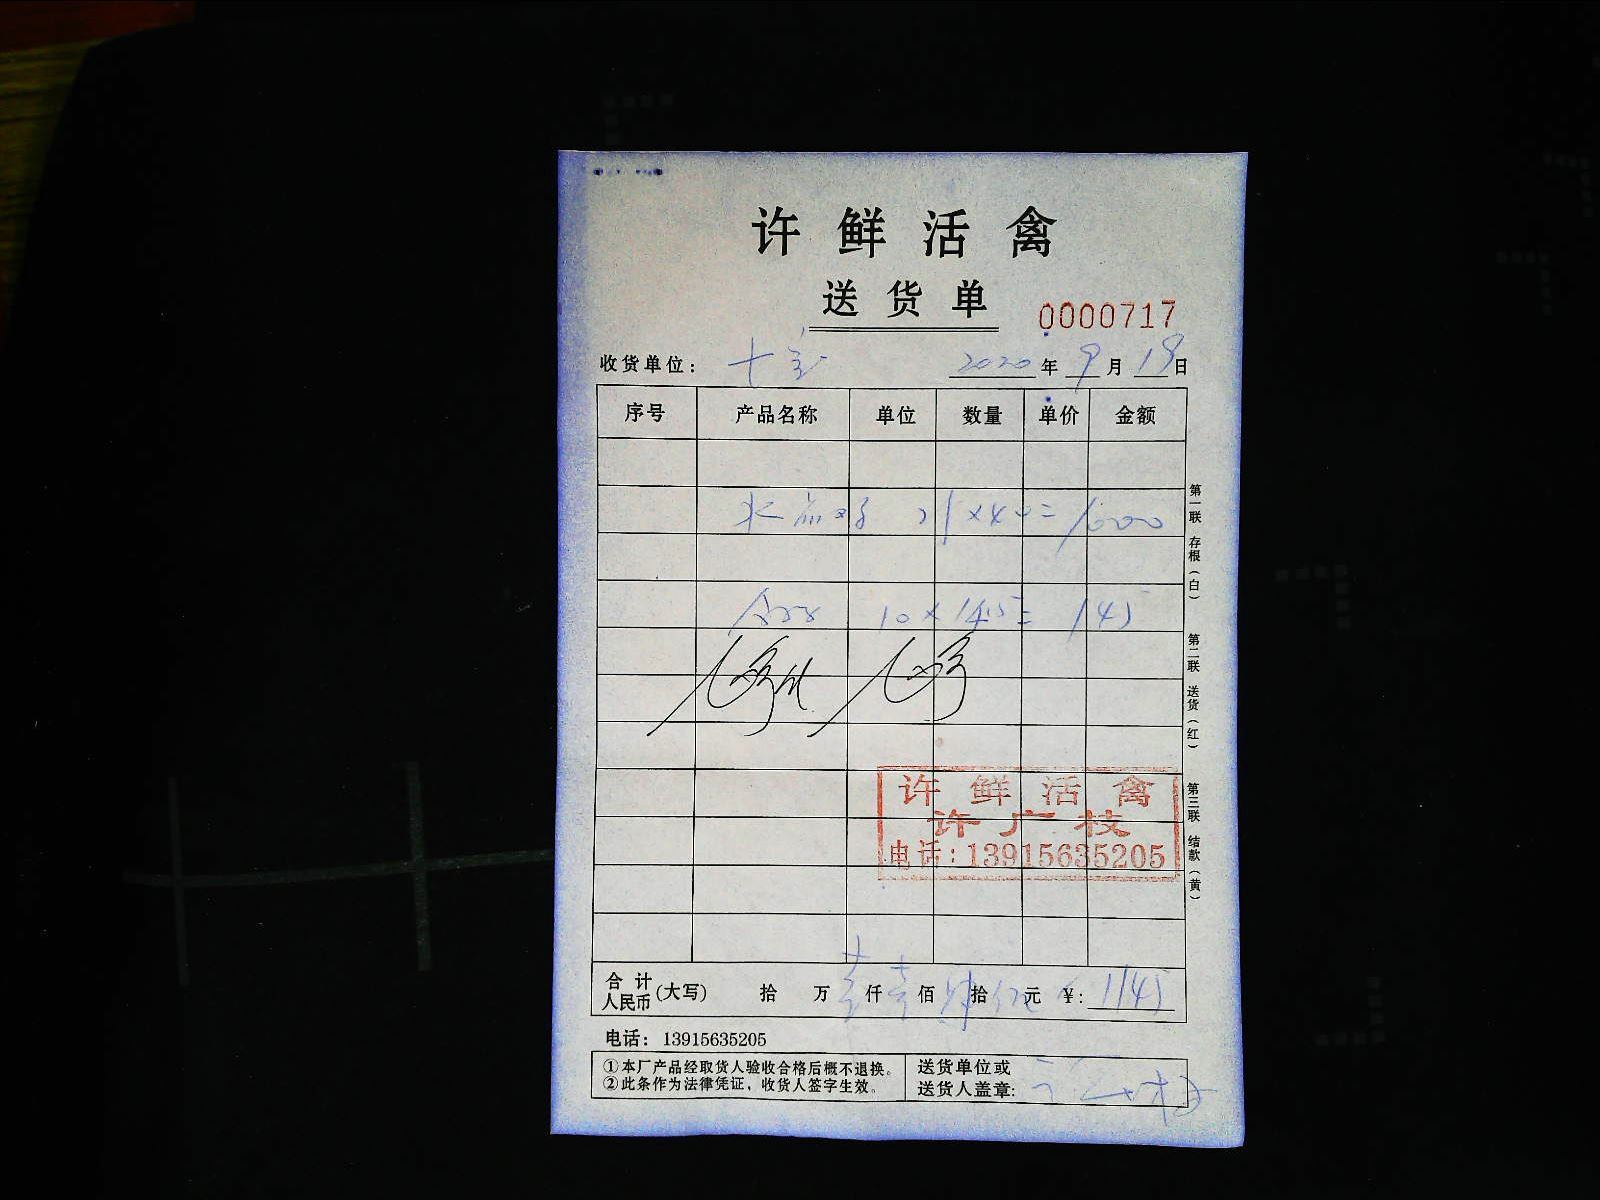 许鲜活禽
送货单
0000717
收货单位：
2020年9月19日
序号 产品名称 单位 数量 单价 金额
×40=1000
10×14.5=145
许鲜活禽
许广枝
电话：13915635205
合计人民币(大写) 拾 万 壹仟壹佰肆拾伍元 ¥：1145
电话：13915635205
①本厂产品经取货人验收合格后概不退换。
②此条作为法律凭证，收货人签字生效。
送货单位或
送货人盖章：
第一联 存根（白）
第二联 送货（红）
第三联 结款（黄）